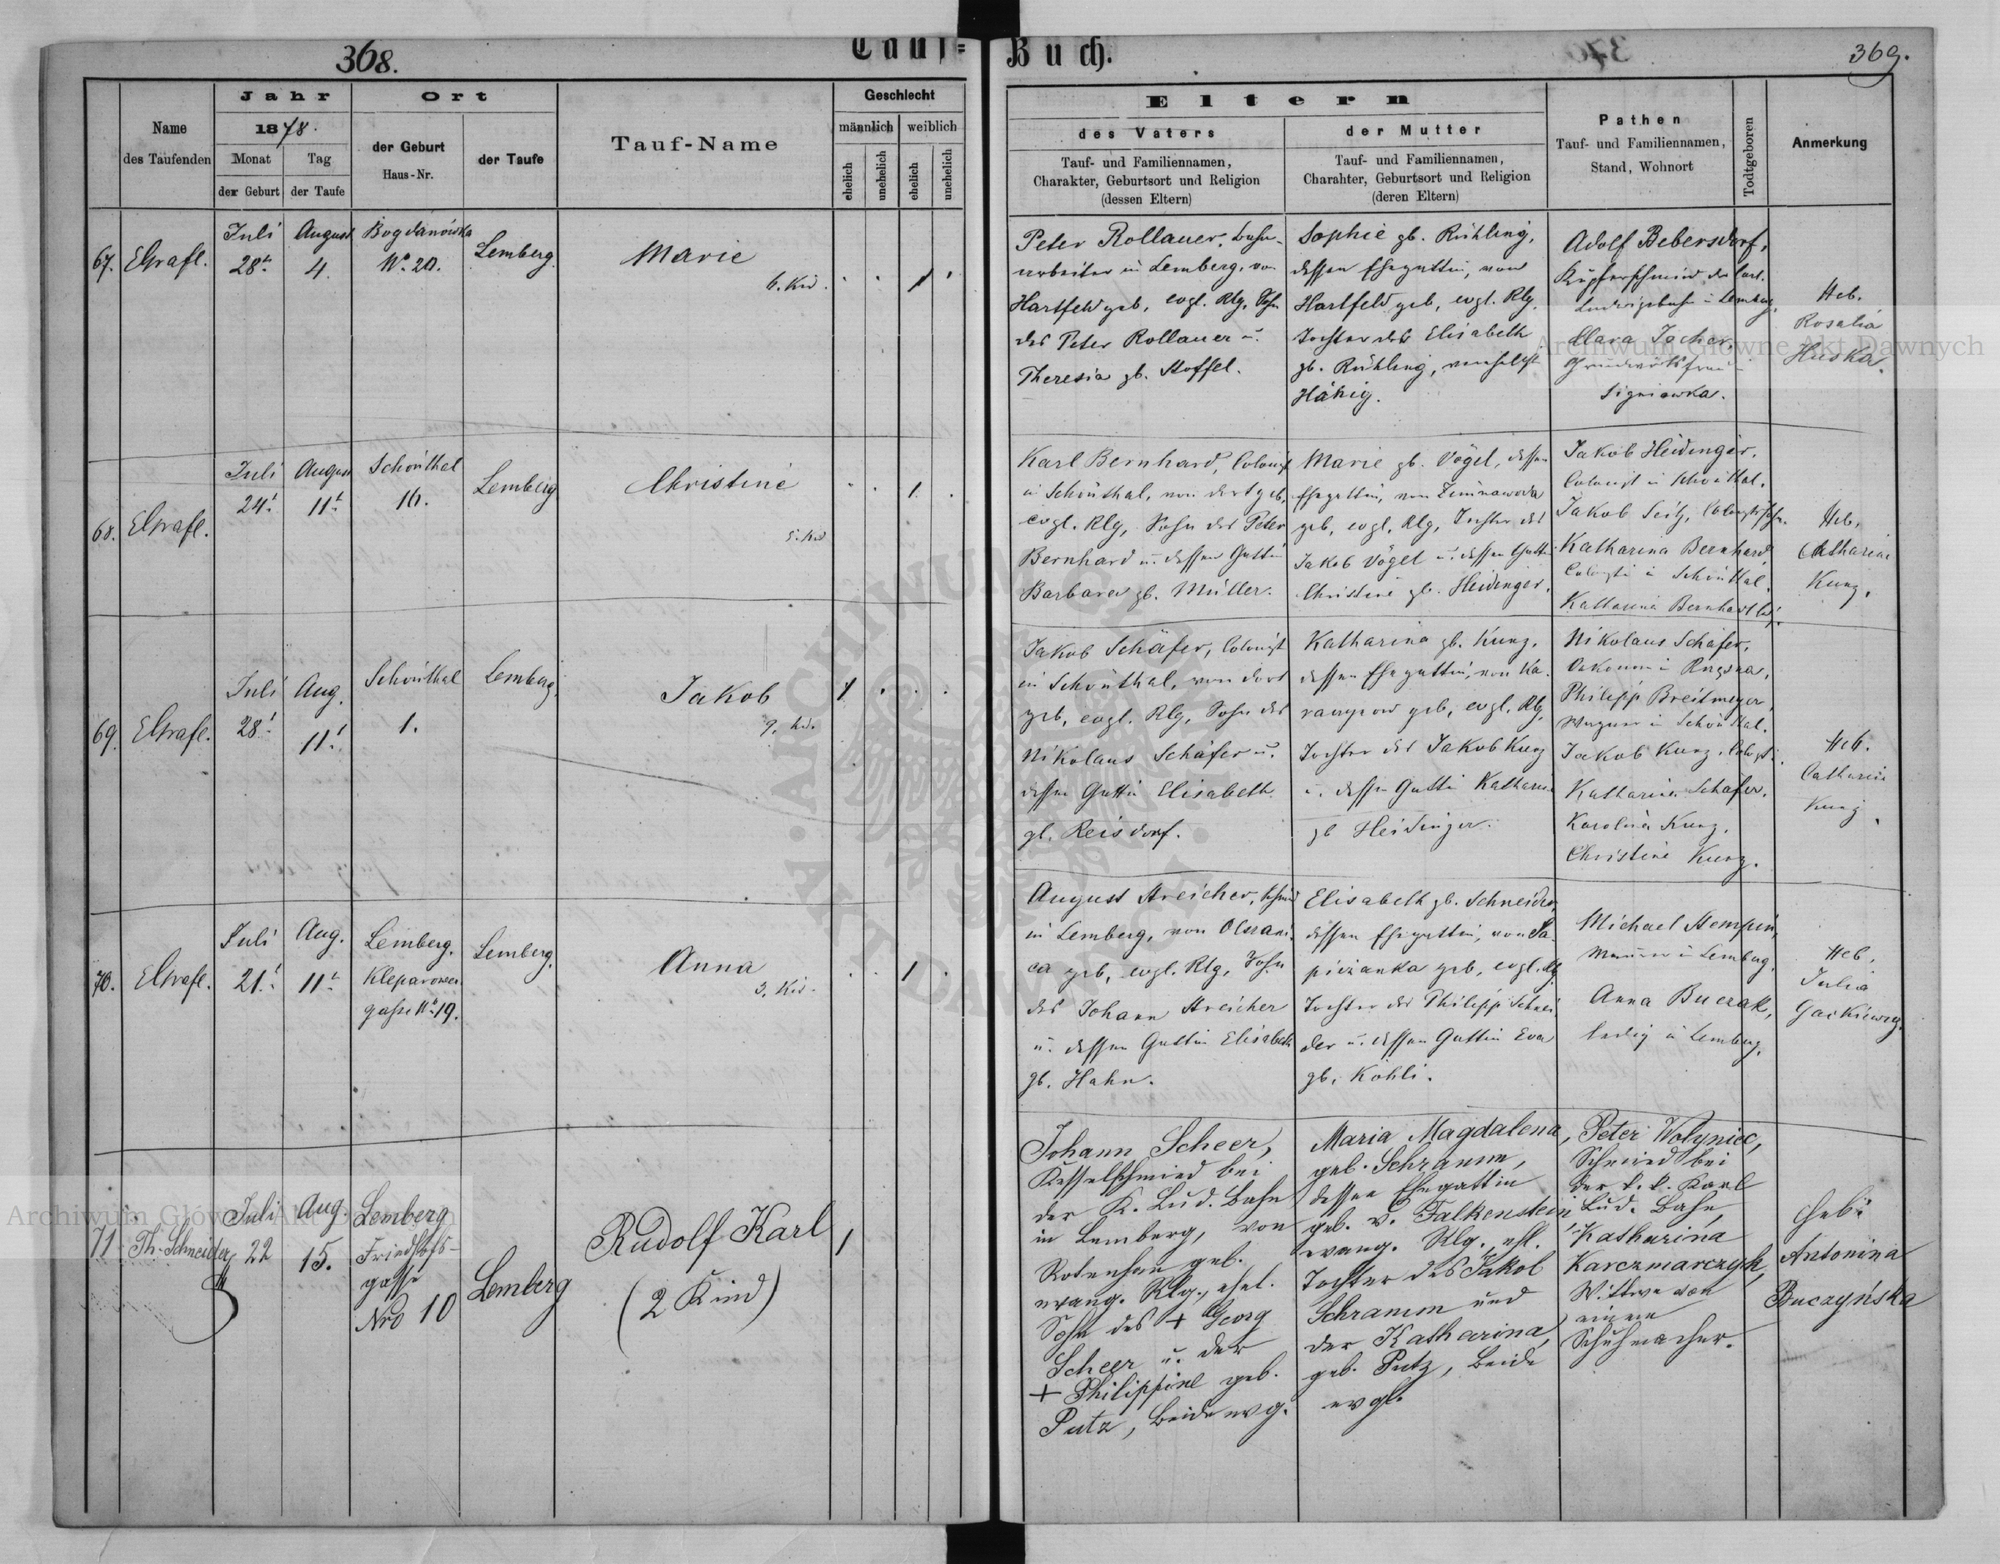 368.
Tauf=
Buch.
369.
Jahr
Ort
Geschlecht
1878.
Name
des Taufenden
Monat
der Geburt
Tag
der Taufe
der Geburt
Haus-Nr.
der Taufe
Tauf-Name
männlich
weiblich
ehelich
unehelich
ehelich
unehelich
Eltern
des Vaters
Tauf- und Familiennamen,
Charakter, Geburtsort und Religion
(dessen Eltern)
der Mutter
Tauf- und Familiennamen,
Charahter, Geburtsort und Religion
(deren Eltern)
Pathen
Tauf- und Familiennamen,
Stand, Wohnort
Todtgeboren
Anmerkung
67.
Juli
28t
August
4.
Bogdanówka
No 20.
Lemberg
Marie
6. Kid.
1
Peter Rollauer, Bahn-
arbeiter in Lemberg, von
Hartfeld geb, evgl. Rlg, Sohn
des Peter Rollauer u.
Theresia gb. Stoffel.
Sophie gb. Rühling,
dessen Ehegattin, von
Hartfeld geb, evgl. Rlg,
Tochter der Elisabeth
gb. Rühling, verehelicht
Hähig.
Adolf Bebersdorf,
Kupferschmied der Carl
Ludwigsbahn in Lemberg,
Clara Jocher,
Signiowka.
Heb.
Rosalia
Huska.
68.
Juli
24t
August
11t
Schönthal
16.
Lemberg
Christine
5. Kid
1
Karl Bernhard, Colonist
in Schönthal, von dort geb,
evgl. Rlg, Sohn des Peter
Bernhard u. dessen Gattin
Barbara gb. Müller.
Marie gb. Vögel, dessen
Ehegattin, von Zimnawoda
geb, evgl. Rlg, Tochter des
Jakob Vögel u. dessen Gattin
Christine gb. Heidinger.
Jakob Heidinger,
Colonist in Schönthal.
Jakob Seitz, Colonistssohn.
Katharina Bernhard,
Colonistin in Schönthal.
Katharina Bernhard
Heb.
Catharine
Kunz.
69.
Juli
28t
Aug.
11t
Schönthal
1.
Lemberg.
Jakob
9. Kid.
1
Jakob Schäfer, Colonist
in Schönthal, von dort
geb, evgl. Rlg, Sohn des
Nikolaus Schäfer u.
dessen Gattin Elisabeth
gb. Reisdorf.
Katharina gb. Kunz,
dessen Ehegattin, von Ka-
geb, evgl. Rlg,
Tochter des Jakob Kunz
u. dessen Gattin Katharina
gb Heidinger.
Nikolaus Schäfer,
Philipp Breitmeyer,
Wagner in Schönthal.
Jakob Kunz, Colonist.
Katharina Schäfer,
Karolina Kunz,
Christine Kunz.
Heb.
Catharina
Kunz
70.
Juli
21t
Aug.
11t
Lemberg,
Kleparower
gasse No 19.
Lemberg.
Anna
3. Kid.
1
August Streicher, Schmied
in Lemberg, von
geb, evgl. Rlg, Sohn
des Johann Streicher
u. dessen Gattin Elisabeth
gb. Hahn.
Elisabeth gb. Schneider,
dessen Ehegattin, von Sa-
pieżanka geb, evgl. Rlg
Tochter des Philipp Schnei-
der u. dessen Gattin Eva
gb. Köhli.
Michael Stempin,
Maurer in Lemberg,
Anna Buczak,
ledig in Lemberg.
Heb.
Julia
71.
Th. Schneider
Juli
22
Aug
15.
Lemberg
Friedhofs-
gasse
Nro 10
Lemberg
Rudolf Karl
(2 Kind)
1
Johann Scheer,
Kesselschmied bei
der K. Lud. Bahn
in Lemberg, von
Rotenhan geb.
evang. Rlg., ehel.
Sohn des + Georg
Scheer u. der
+ Philippine geb.
Putz, beide evg.
Maria Magdalena,
geb. Schramm,
dessen Ehegattin
geb. v. Falkenstein,
evang. Rlg., ehl.
Tochter des Jakob
Schramm und
der Katharina,
geb. Putz, beide
evgl.
Peter Wolyniec,
Schmied bei
der k. k. Karl
Lud. Bahn,
Katharina
Karczmarczyk,
Wittwe von
einem
Schuhmacher.
Heb:
Antonina
Buczyńska
Archiwum Główne Akt Dawnych
Archiwum Główne Akt Dawnych